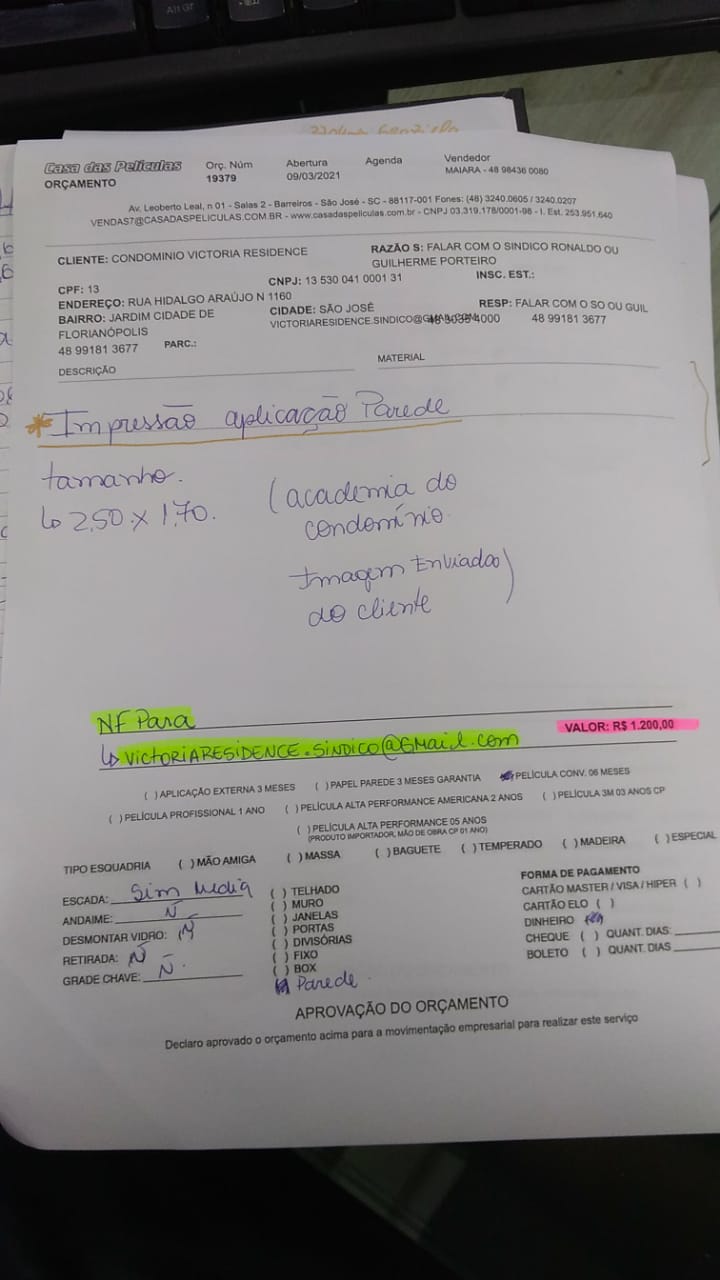 Alt Gr
Casa das Películas
ORÇAMENTO
Orç. Núm
19379
Abertura
09/03/2021
Agenda
Vendedor
MAIARA - 48 98436 0080
Av. Leoberto Leal, n 01 - Salas 2 - Barreiros - São José - SC - 88117-001 Fones: (48) 3240.0605 / 3240.0207
VENDAS7@CASADASPELICULAS.COM.BR - www.casadaspeliculas.com.br - CNPJ 03.319.178/0001-98 - I. Est. 253.951.640
CLIENTE: CONDOMINIO VICTORIA RESIDENCE
RAZÃO S: FALAR COM O SINDICO RONALDO OU
GUILHERME PORTEIRO
CPF: 13
CNPJ: 13 530 041 0001 31
INSC. EST.:
ENDEREÇO: RUA HIDALGO ARAÚJO N 1160
BAIRRO: JARDIM CIDADE DE
FLORIANÓPOLIS
CIDADE: SÃO JOSÉ
RESP: FALAR COM O SO OU GUIL
VICTORIARESIDENCE.SINDICO@GMAIL.COM
48 3035 4000
48 99181 3677
48 99181 3677
PARC.:
DESCRIÇÃO
MATERIAL
* Impressão aplicação Parede
tamanho.
↳ 2,50 x 1,70.
(academia do
condomínio.
Imagem Enviada)
do cliente
NF Para
↳ VICTORIARESIDENCE.SINDICO@GMail.com
VALOR: R$ 1.200,00
( ) APLICAÇÃO EXTERNA 3 MESES ( ) PAPEL PAREDE 3 MESES GARANTIA PELÍCULA CONV. 06 MESES
( ) PELÍCULA PROFISSIONAL 1 ANO ( ) PELÍCULA ALTA PERFORMANCE AMERICANA 2 ANOS ( ) PELÍCULA 3M 03 ANOS CP
( ) PELÍCULA ALTA PERFORMANCE 05 ANOS
(PRODUTO IMPORTADOR, MÃO DE OBRA CP 01 ANO)
TIPO ESQUADRIA ( ) MÃO AMIGA ( ) MASSA ( ) BAGUETE ( ) TEMPERADO ( ) MADEIRA ( ) ESPECIAL
ESCADA: Sim Media
ANDAIME: Ñ
DESMONTAR VIDRO: Ñ
RETIRADA: Ñ
GRADE CHAVE: Ñ.
( ) TELHADO
( ) MURO
( ) JANELAS
( ) PORTAS
( ) DIVISÓRIAS
( ) FIXO
( ) BOX
Parede.
FORMA DE PAGAMENTO
CARTÃO MASTER / VISA / HIPER ( )
CARTÃO ELO ( )
DINHEIRO
CHEQUE ( ) QUANT. DIAS:
BOLETO ( ) QUANT. DIAS
APROVAÇÃO DO ORÇAMENTO
Declaro aprovado o orçamento acima para a movimentação empresarial para realizar este serviço